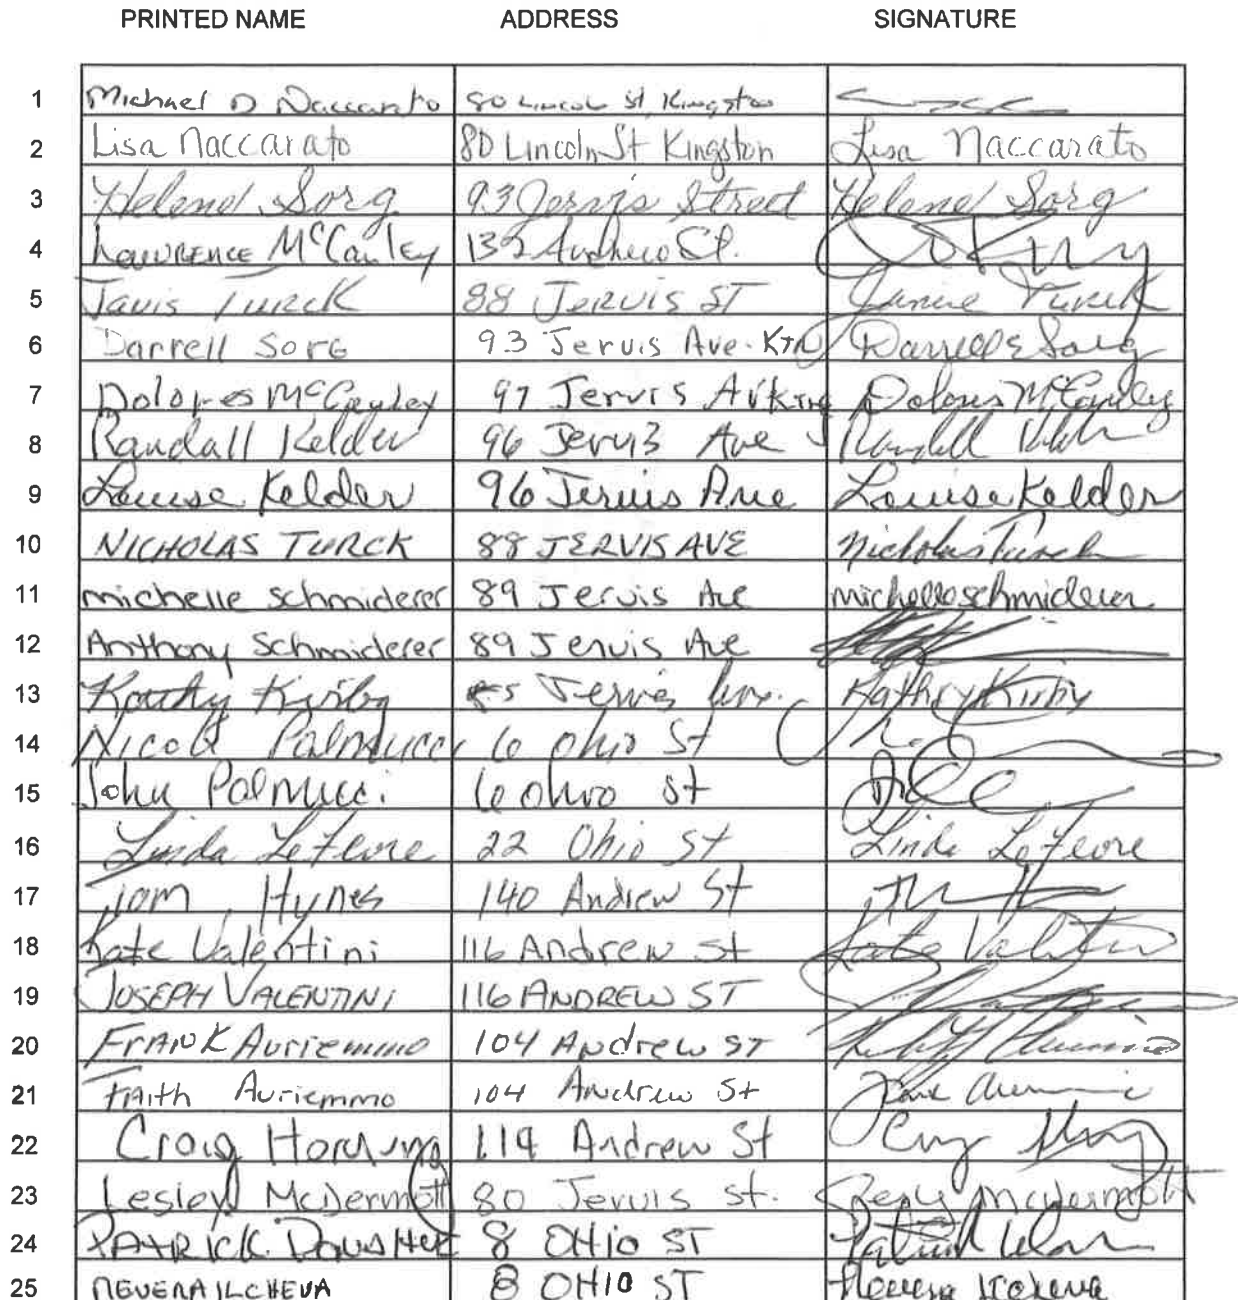 PRINTED NAME ADDRESS SIGNATURE
1 Michael D Naccarato 80 Lincoln St Kingston
2 Lisa Naccarato 80 Lincoln St Kingston Lisa Naccarato
3 Helene Sorg 93 Jervis Street Helene Sorg
4 Lawrence McCauley 132 Andrew St.
5 Turck 88 Jervis ST Janice Turck
6 Darrell Sorg 93 Jervis Ave. KTN Darrell Sorg
7 Dolores McCauley 97 Jervis Dolores McCauley
8 Randall Kelder 96 Jervis Ave Randall
9 Louise Kelder 96 Jervis Ave Louise Kelder
10 NICHOLAS TURCK 88 JERVIS AVE Nicholas Turck
11 michelle schmiderer 89 Jervis Ave michelle schmiderer
12 Anthony Schmiderer 89 Jervis Ave
13 Kathy Kirby Jervis Ave. Kathy Kirby
14 Nicole Palmucci 6 Ohio St
15 John Palmucci 6 Ohio St
16 Linda LeFevre 22 Ohio St Linda LeFevre
17 Tom Hynes 140 Andrew St
18 Kate Valentini 116 Andrew St Kate
19 JOSEPH VALENTINI 116 ANDREW ST
20 FRANK Auriemmo 104 Andrew ST
21 FAith Auriemmo 104 Andrew St
22 Craig Hornung 114 Andrew St
23 Lesley McDermott 80 Jervis St. McDermott
24 PATRICK 8 OHIO ST
25 NEVENA ILCHEVA 8 OHIO ST